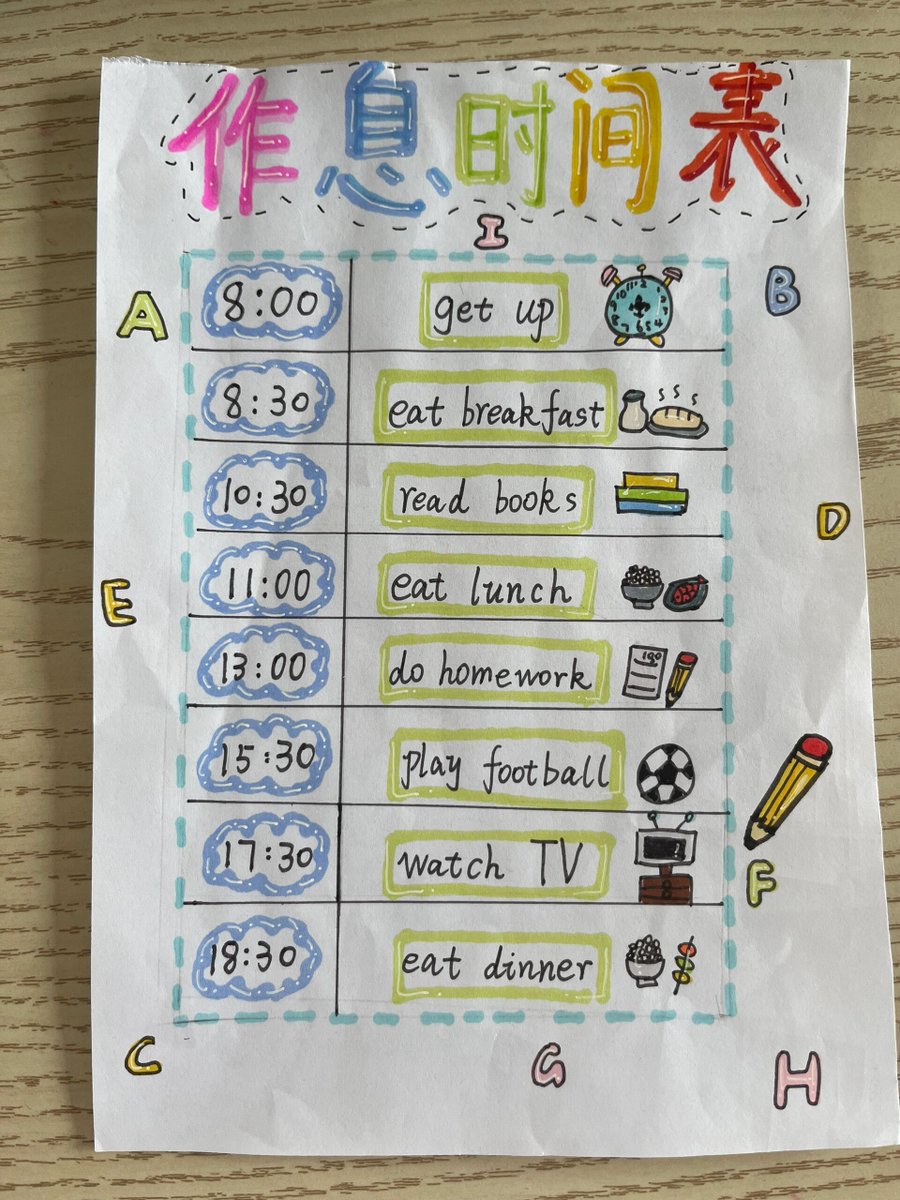 作息时间表
I
A
B
8:00 get up
8:30 eat breakfast
10:30 read books
D
11:00 eat lunch
E
13:00 do homework
100
15:30 play football
17:30 watch TV
F
18:30 eat dinner
C
G
H